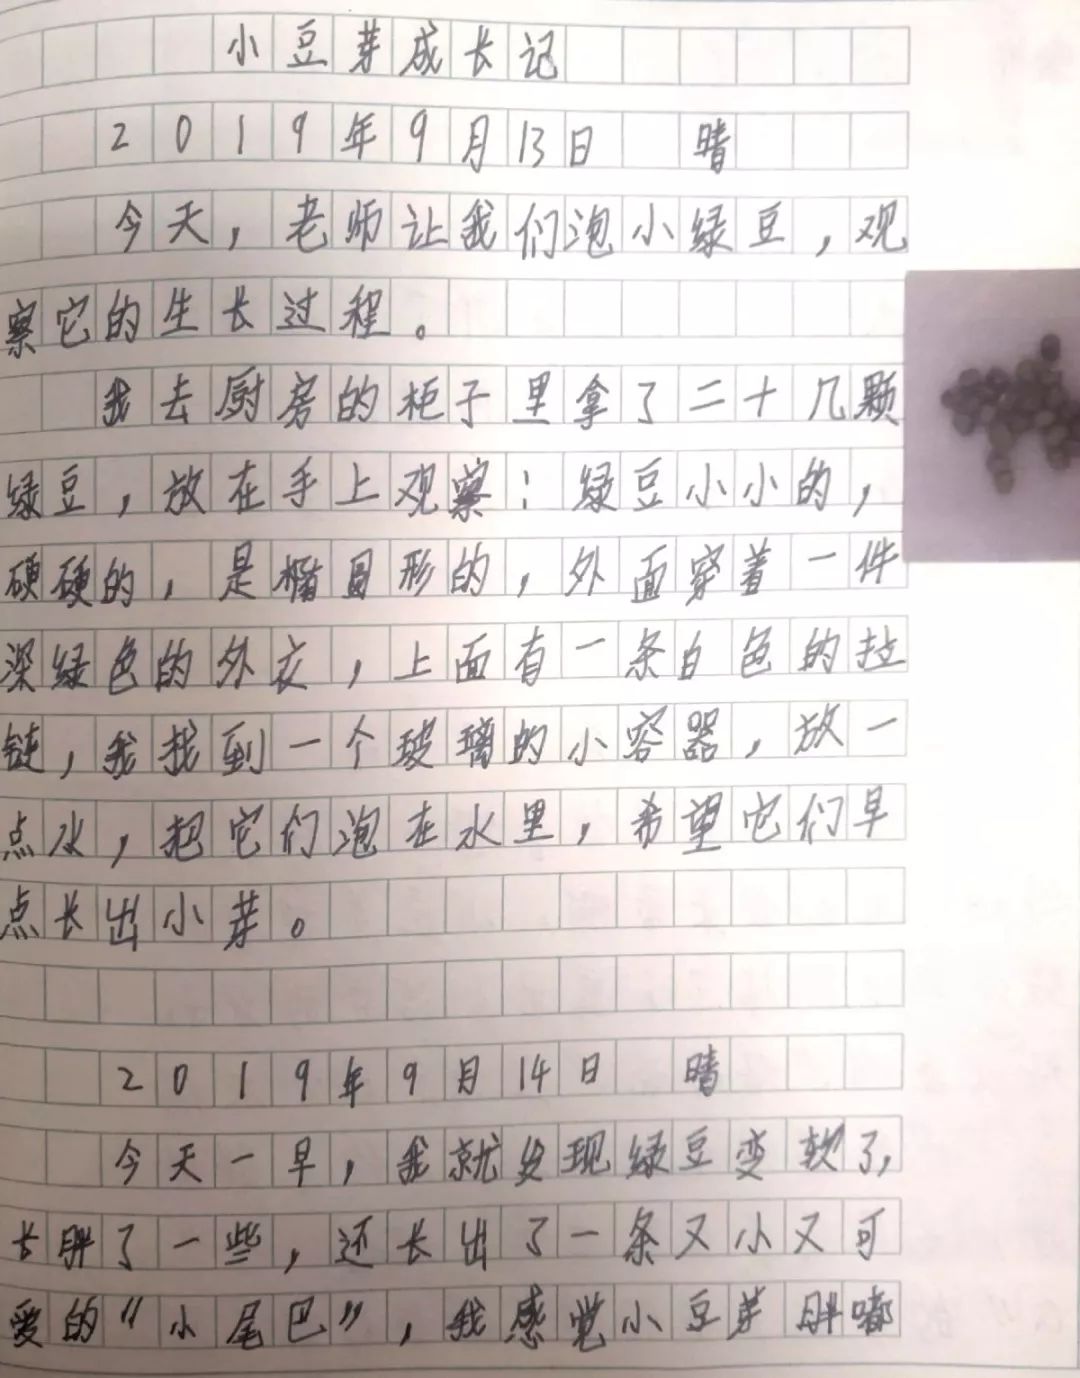 小豆芽成长记
2019年9月13日 晴
今天，老师让我们泡小绿豆，观
察它的生长过程。
我去厨房的柜子里拿了二十几颗
绿豆，放在手上观察：绿豆小小的，
硬硬的，是椭圆形的，外面穿着一件
深绿色的外衣，上面有一条白色的拉
链，我找到一个玻璃的小容器，放一
点水，把它们泡在水里，希望它们早
点长出小芽。
2019年9月14日 晴
今天一早，我就发现绿豆变软了，
长胖了一些，还长出了一条又小又可
爱的“小尾巴”，我感觉小豆芽胖嘟